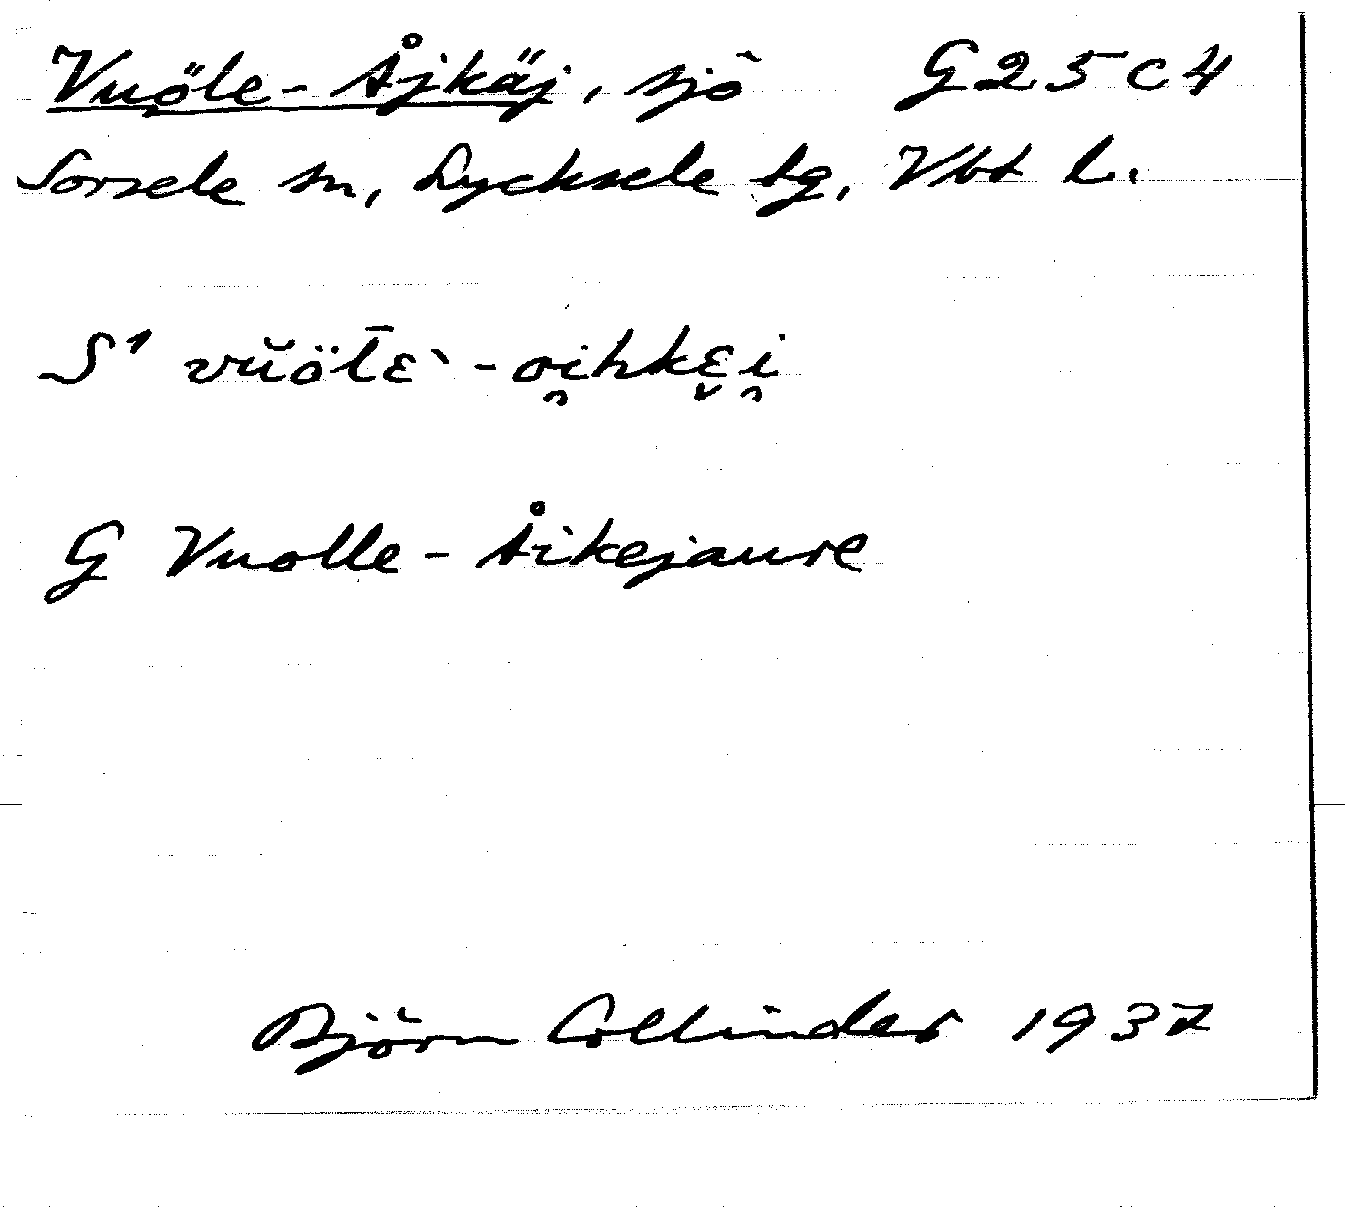 Vuöle-Åjkäj, sjö G25c4
Sorsele sn, Lycksele lg, Vbt l.
S¹ vŭöl̄ɛ` -oi̯hkɛ̬i̯
G Vuolle-Åikejaure
Björn Collinder 1937